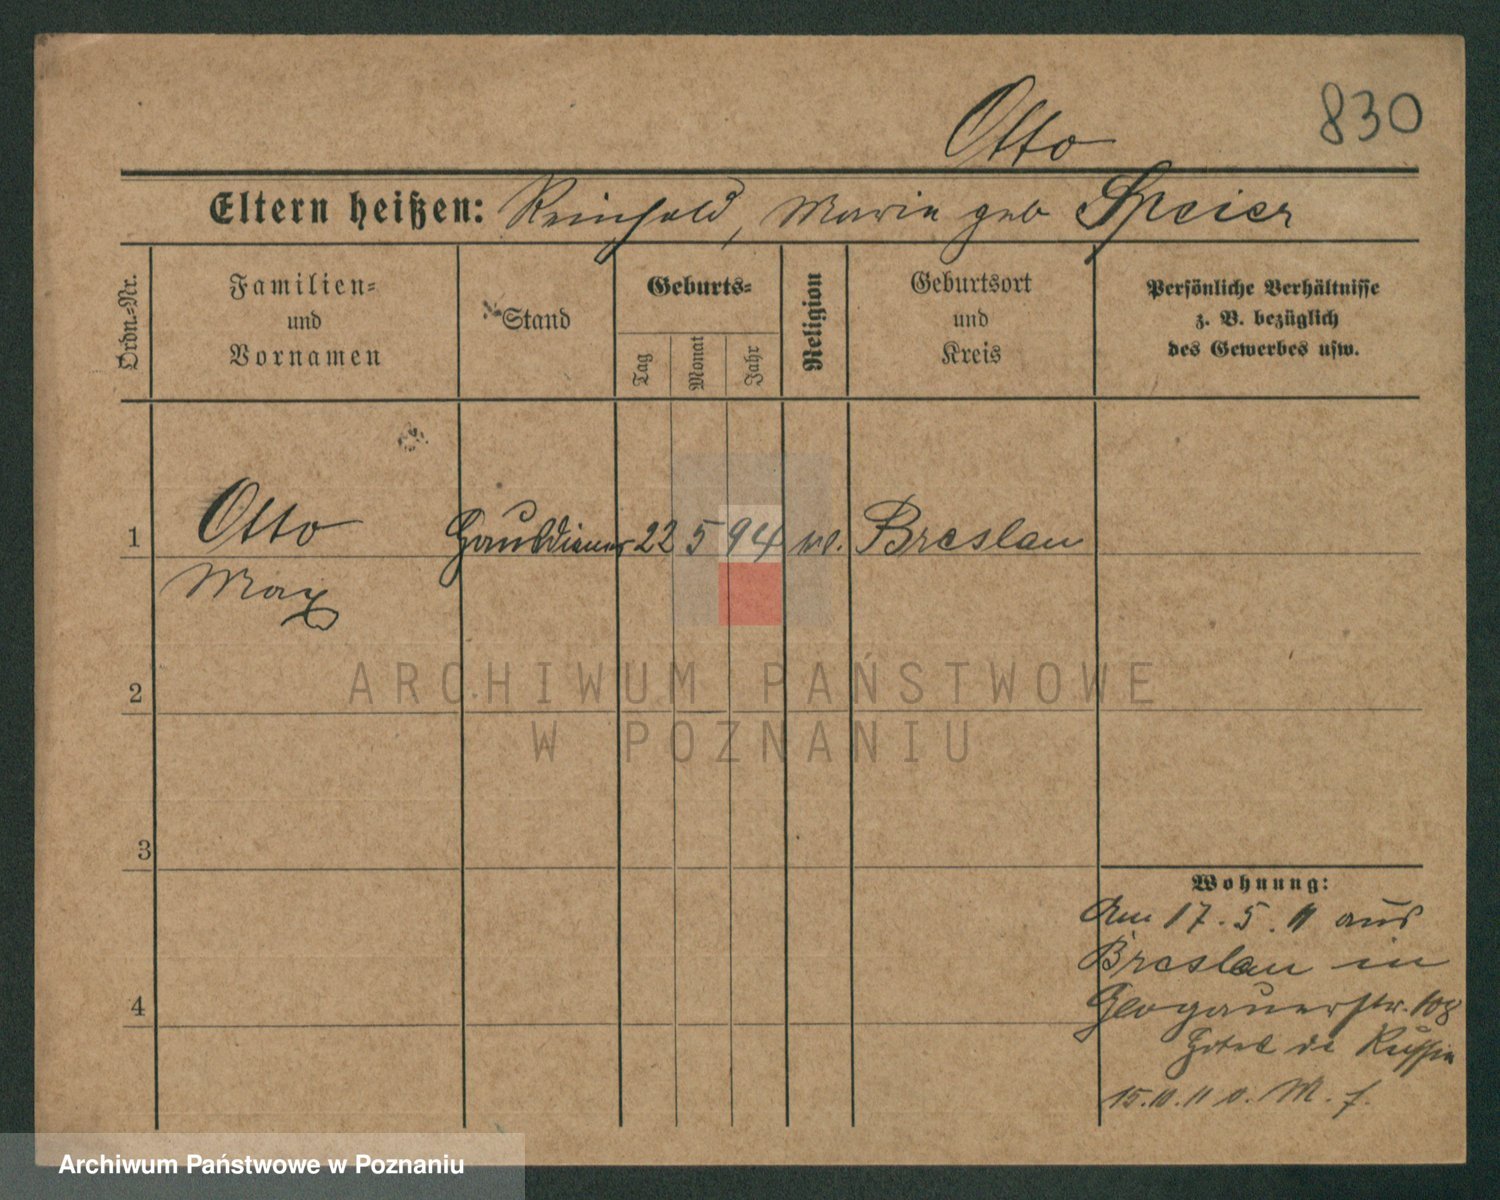 830
Otto
Eltern heißen: Reinhold, Maria geb Speier
Ordn.-Nr.
Familien-
und
Vornamen
Stand
Geburts-
Tag
Monat
Jahr
Religion
Geburtsort
und
Kreis
Persönliche Verhältnisse
z. B. bezüglich
des Gewerbes usw.
1 Otto Hausdiener 22 5 94 Breslau
Max
2
3
4
Wohnung:
Am 17. 5. 11 aus
Breslau in
Glogauerstr. 108
Hotel de Russie
15. 11
ARCHIWUM PAŃSTWOWE
W POZNANIU
Archiwum Państwowe w Poznaniu